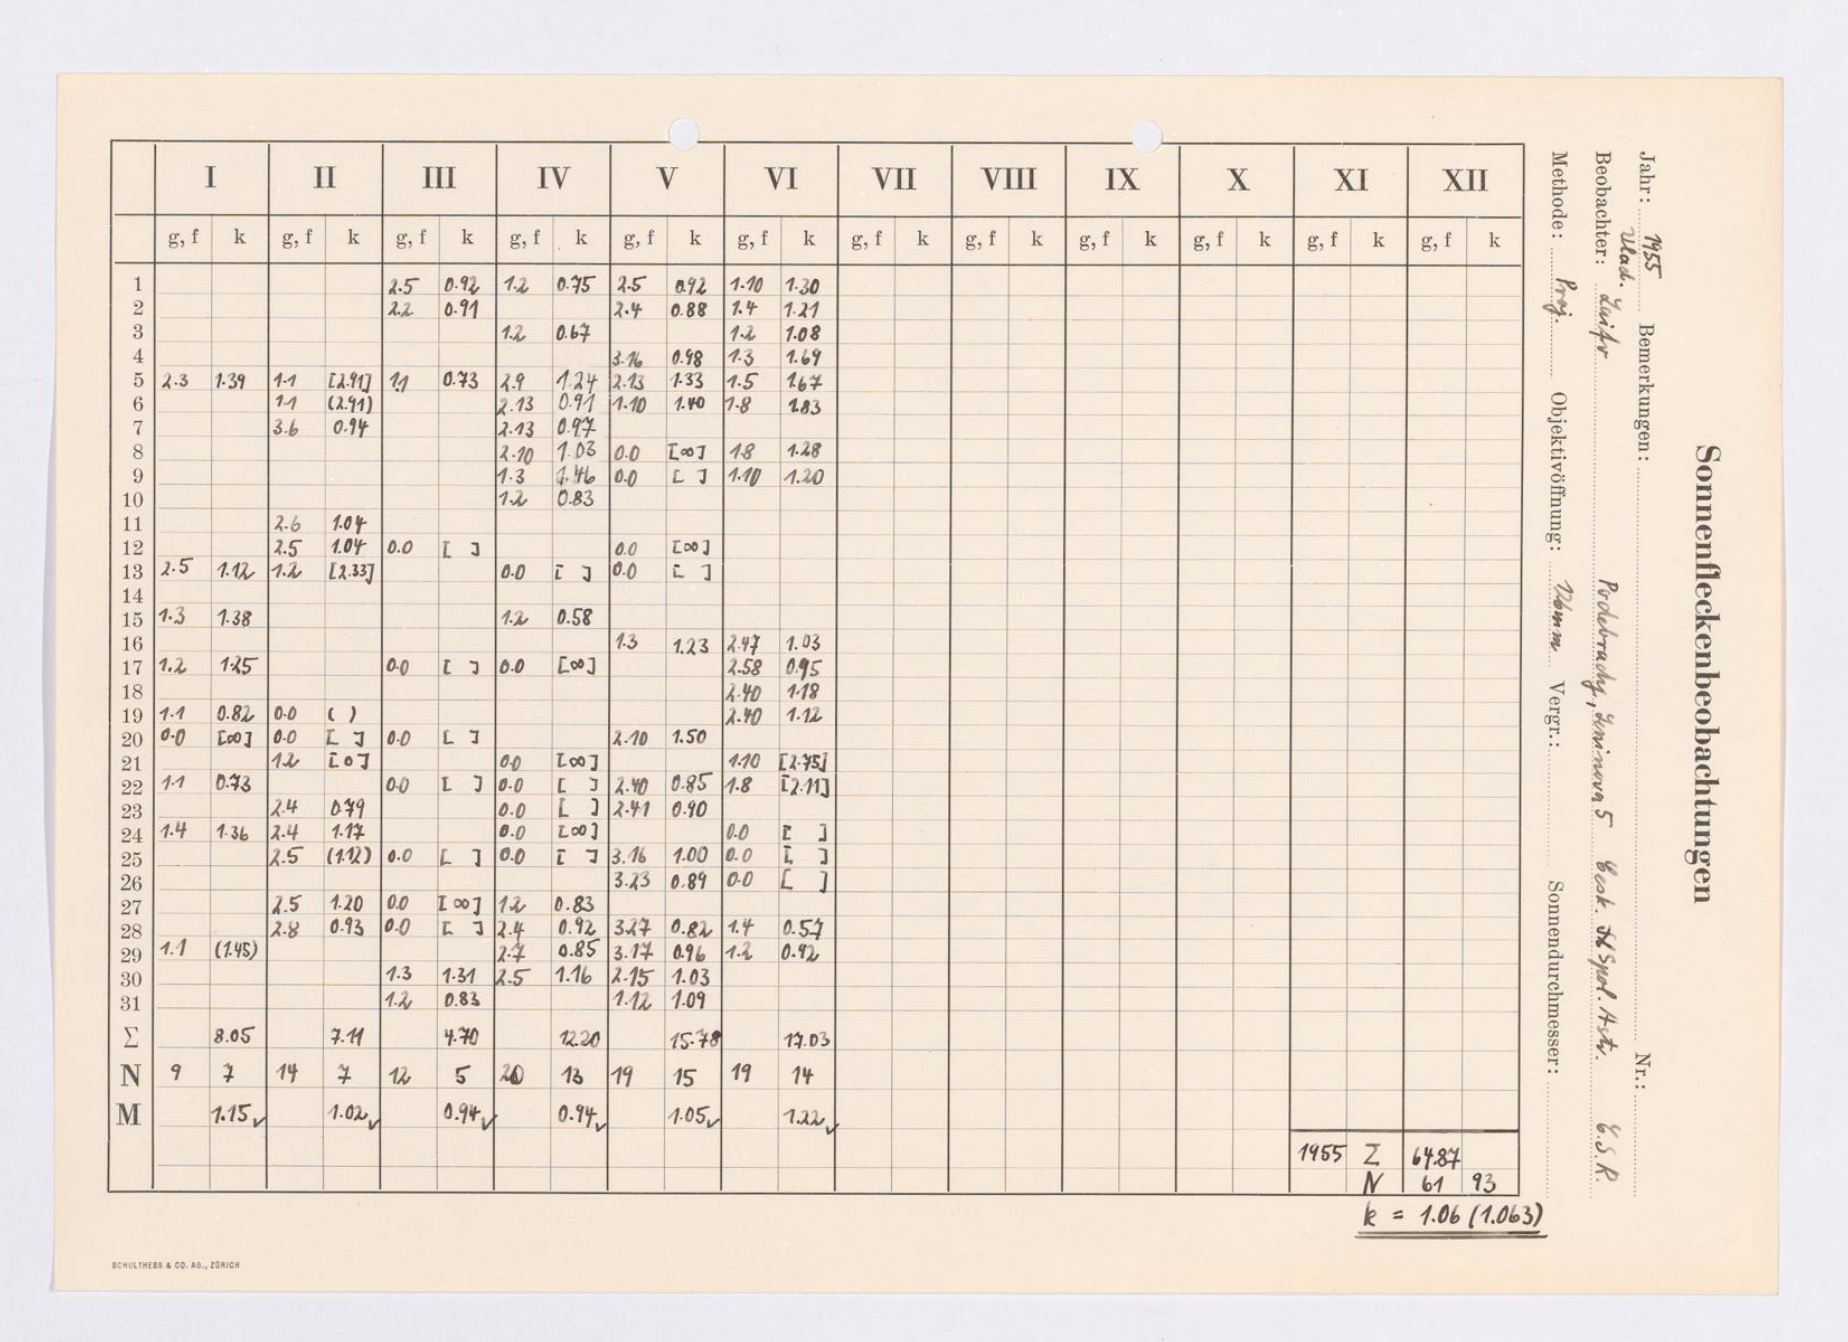 Sonnenfleckenbeobachtungen
Jahr: 1955 Bemerkungen: Nr.:
Beobachter: Vlad. Podebrady, 5 Česk. Spol. Astr. Č.S.R.
Methode: Proj. Objektivöffnung: 126mm Vergr.: Sonnendurchmesser:
I II III IV V VI VII VIII IX X XI XII
g, f k g, f k g, f k g, f k g, f k g, f k g, f k g, f k g, f k g, f k g, f k g, f k
1 2.5 0.92 1.2 0.75 2.5 0.92 1.10 1.30
2 2.2 0.91 2.4 0.88 1.4 1.21
3 1.2 0.67 1.2 1.08
4 3.16 0.98 1.3 1.69
5 2.3 1.39 1.1 [2.91] 1.1 0.73 2.9 1.24 2.13 1.33 1.5 1.67
6 1.1 (2.91) 2.13 0.91 1.10 1.40 1.8 1.83
7 3.6 0.94 2.13 0.97
8 2.10 1.03 0.0 [∞] 1.8 1.28
9 1.3 1.46 0.0 [ ] 1.10 1.20
10 1.2 0.83
11 2.6 1.04
12 2.5 1.04 0.0 [ ] 0.0 [∞]
13 2.5 1.12 1.2 [2.33] 0.0 [ ] 0.0 [ ]
14
15 1.3 1.38 1.2 0.58
16 1.3 1.23 2.47 1.03
17 1.2 1.25 0.0 [ ] 0.0 [∞] 2.58 0.95
18 2.40 1.18
19 1.1 0.82 0.0 ( ) 2.40 1.12
20 0.0 [∞] 0.0 [ ] 0.0 [ ] 2.10 1.50
21 1.2 [0] 0.0 [∞] 1.10 [2.75]
22 1.1 0.73 0.0 [ ] 0.0 [ ] 2.40 0.85 1.8 [2.11]
23 2.4 0.79 0.0 [ ] 2.41 0.90
24 1.4 1.36 2.4 1.17 0.0 [∞] 0.0 [ ]
25 2.5 (1.12) 0.0 [ ] 0.0 [ ] 3.16 1.00 0.0 [ ]
26 3.23 0.89 0.0 [ ]
27 2.5 1.20 0.0 [∞] 1.2 0.83
28 2.8 0.93 0.0 [ ] 2.4 0.92 3.27 0.82 1.4 0.57
29 1.1 (1.45) 2.7 0.85 3.17 0.96 1.2 0.92
30 1.3 1.31 2.5 1.16 2.15 1.03
31 1.2 0.83 1.12 1.09
Σ 8.05 7.11 4.70 12.20 15.78 17.03
N 9 7 14 7 12 5 20 13 19 15 19 14
M 1.15✓ 1.02✓ 0.94✓ 0.94✓ 1.05✓ 1.22✓
1955 Σ 64.87
N 61 93
k = 1.06 (1.063)
SCHULTHESS & CO. AG., ZÜRICH